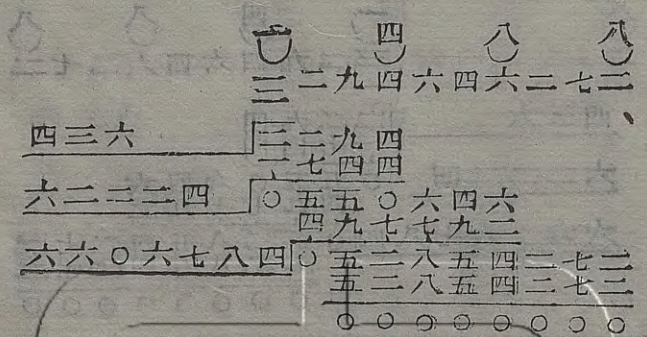 一 四 八 八
三二九四六四六二七二
四三六 二二九四
一七四四
六二二二四 〇五五〇六四六
四九七七九二
六六〇六七八四 〇五二八五四二七二
五二八五四二七二
〇〇〇〇〇〇〇〇